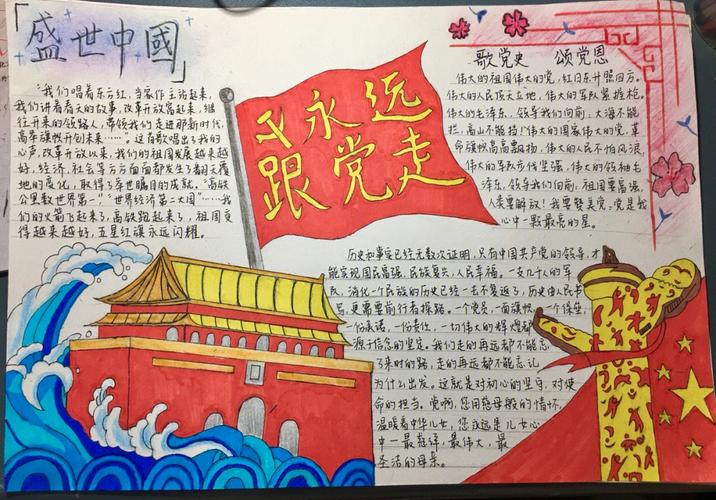 「盛世中國」
“我们唱着东方红，当家作主站起来，
我们讲着春天的故事，改革开放富起来，继
往开来的领路人，带领我们走进那新时代，
高举旗帜开创未来……”。这首歌唱出了我的
心声，改革开放以来，我们的祖国发展越来越
好，经济、社会等方方面面都发生了翻天覆
地的变化，取得了举世瞩目的成就。“高铁
公里数世界第一”“世界经济第二大国”……我
们的火箭飞起来了，高铁跑起来了，祖国变
得越来越好，五星红旗永远闪耀。
永远
跟党走
歌党史 颂党恩
伟大的祖国伟大的党，红日东升照四方。
伟大的人民顶天立地，伟大的军队紧握枪。
伟大的毛泽东，领导我们向前，大海不能
拦，高山不能挡！伟大的国家伟大的党，革
命旗帜高高飘扬，伟大的人民不怕风浪
伟大的军队步伐坚强，伟大的领袖毛
泽东，领导我们向前，祖国要富强，
人类要解放！我要赞美党，党是我
心中一颗最亮的星。
历史和事实已经无数次证明，只有中国共产党的领导，才
能实现国民富强，民族复兴，人民幸福。一支几千人的军
队，消化一个民族的历史已经一去不复返了，历史由人民书
写，更需要前行者探路。一个党员，一面旗帜，一个保垒，
一份承诺，一份责任，一切伟大的辉煌都
源于信念的坚定。我们走的再远都不能忘
了来时的路，走的再远都不能忘记
为什么出发。这就是对初心的坚守，对使
命的担当。党啊，您用慈母般的情怀，
温暖着中华儿女，您永远是儿女心
中一最慈祥、最伟大、最
圣洁的母亲。